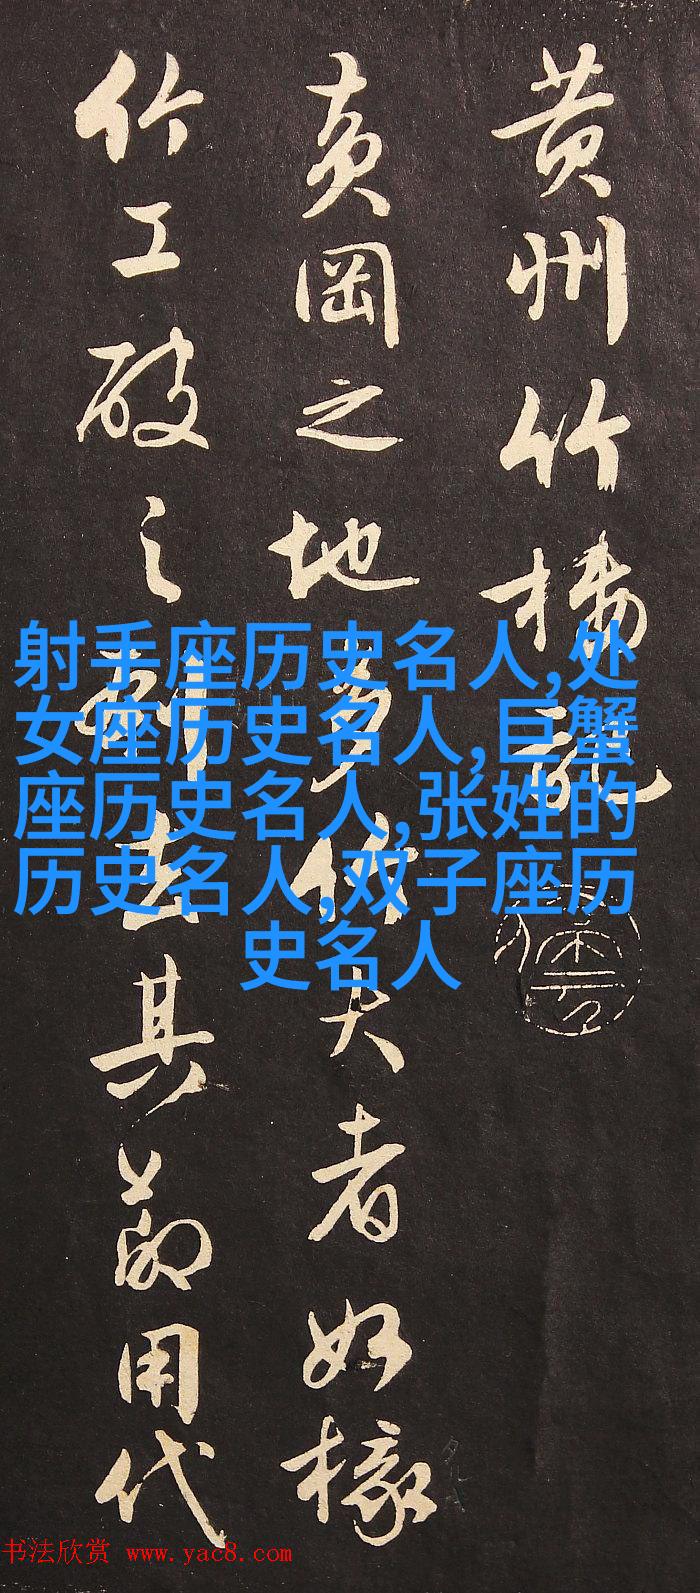 黄州竹樓記
黄岡之地多竹大者如椽
竹工破之刳去其節用代
射手座历史名人,处
女座历史名人,巨蟹
座历史名人,张姓的
历史名人,双子座历
史名人
书法欣赏 www.yac8.com